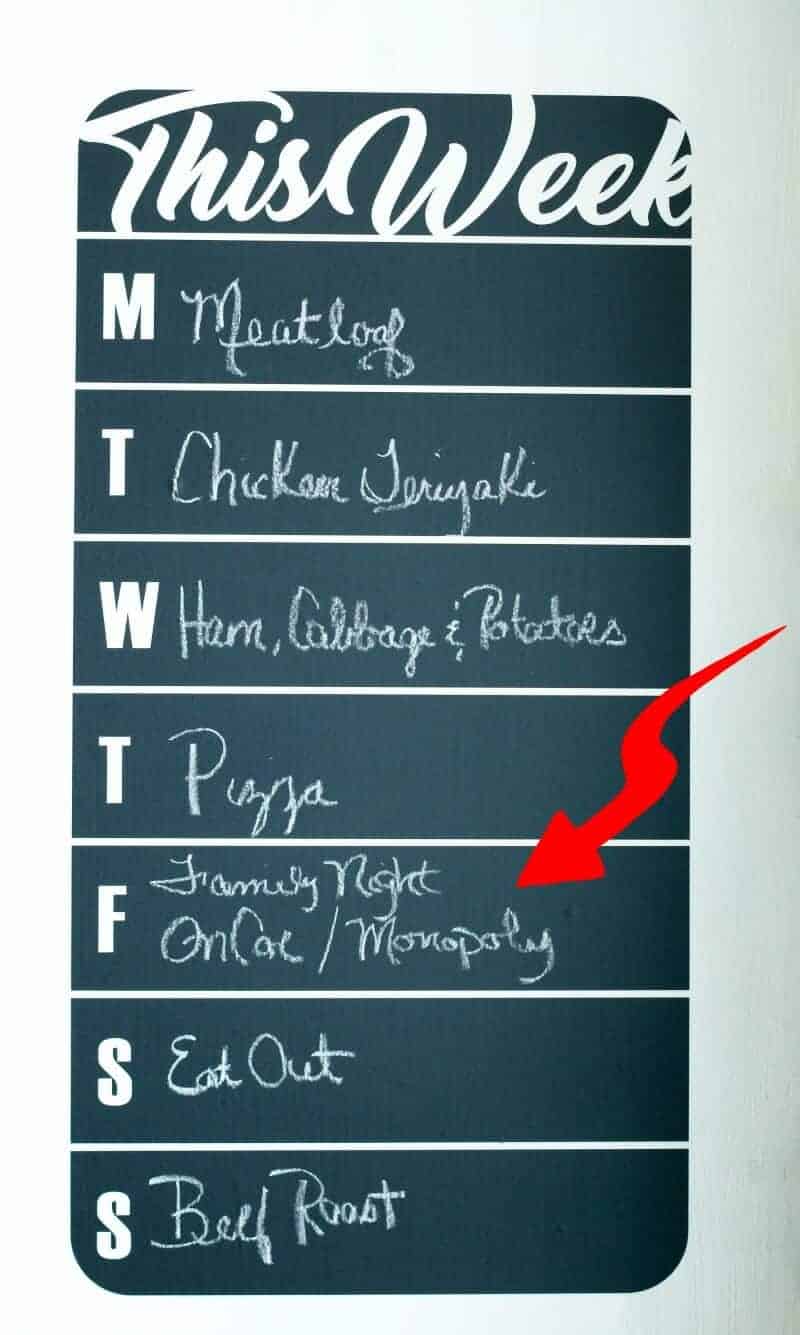 This Week
M Meatloaf
T Chicken Teriyaki
W Ham, Cabbage & Potatoes
T Pizza
F Family Night
OnCor / Monopoly
S Eat Out
S Beef Roast